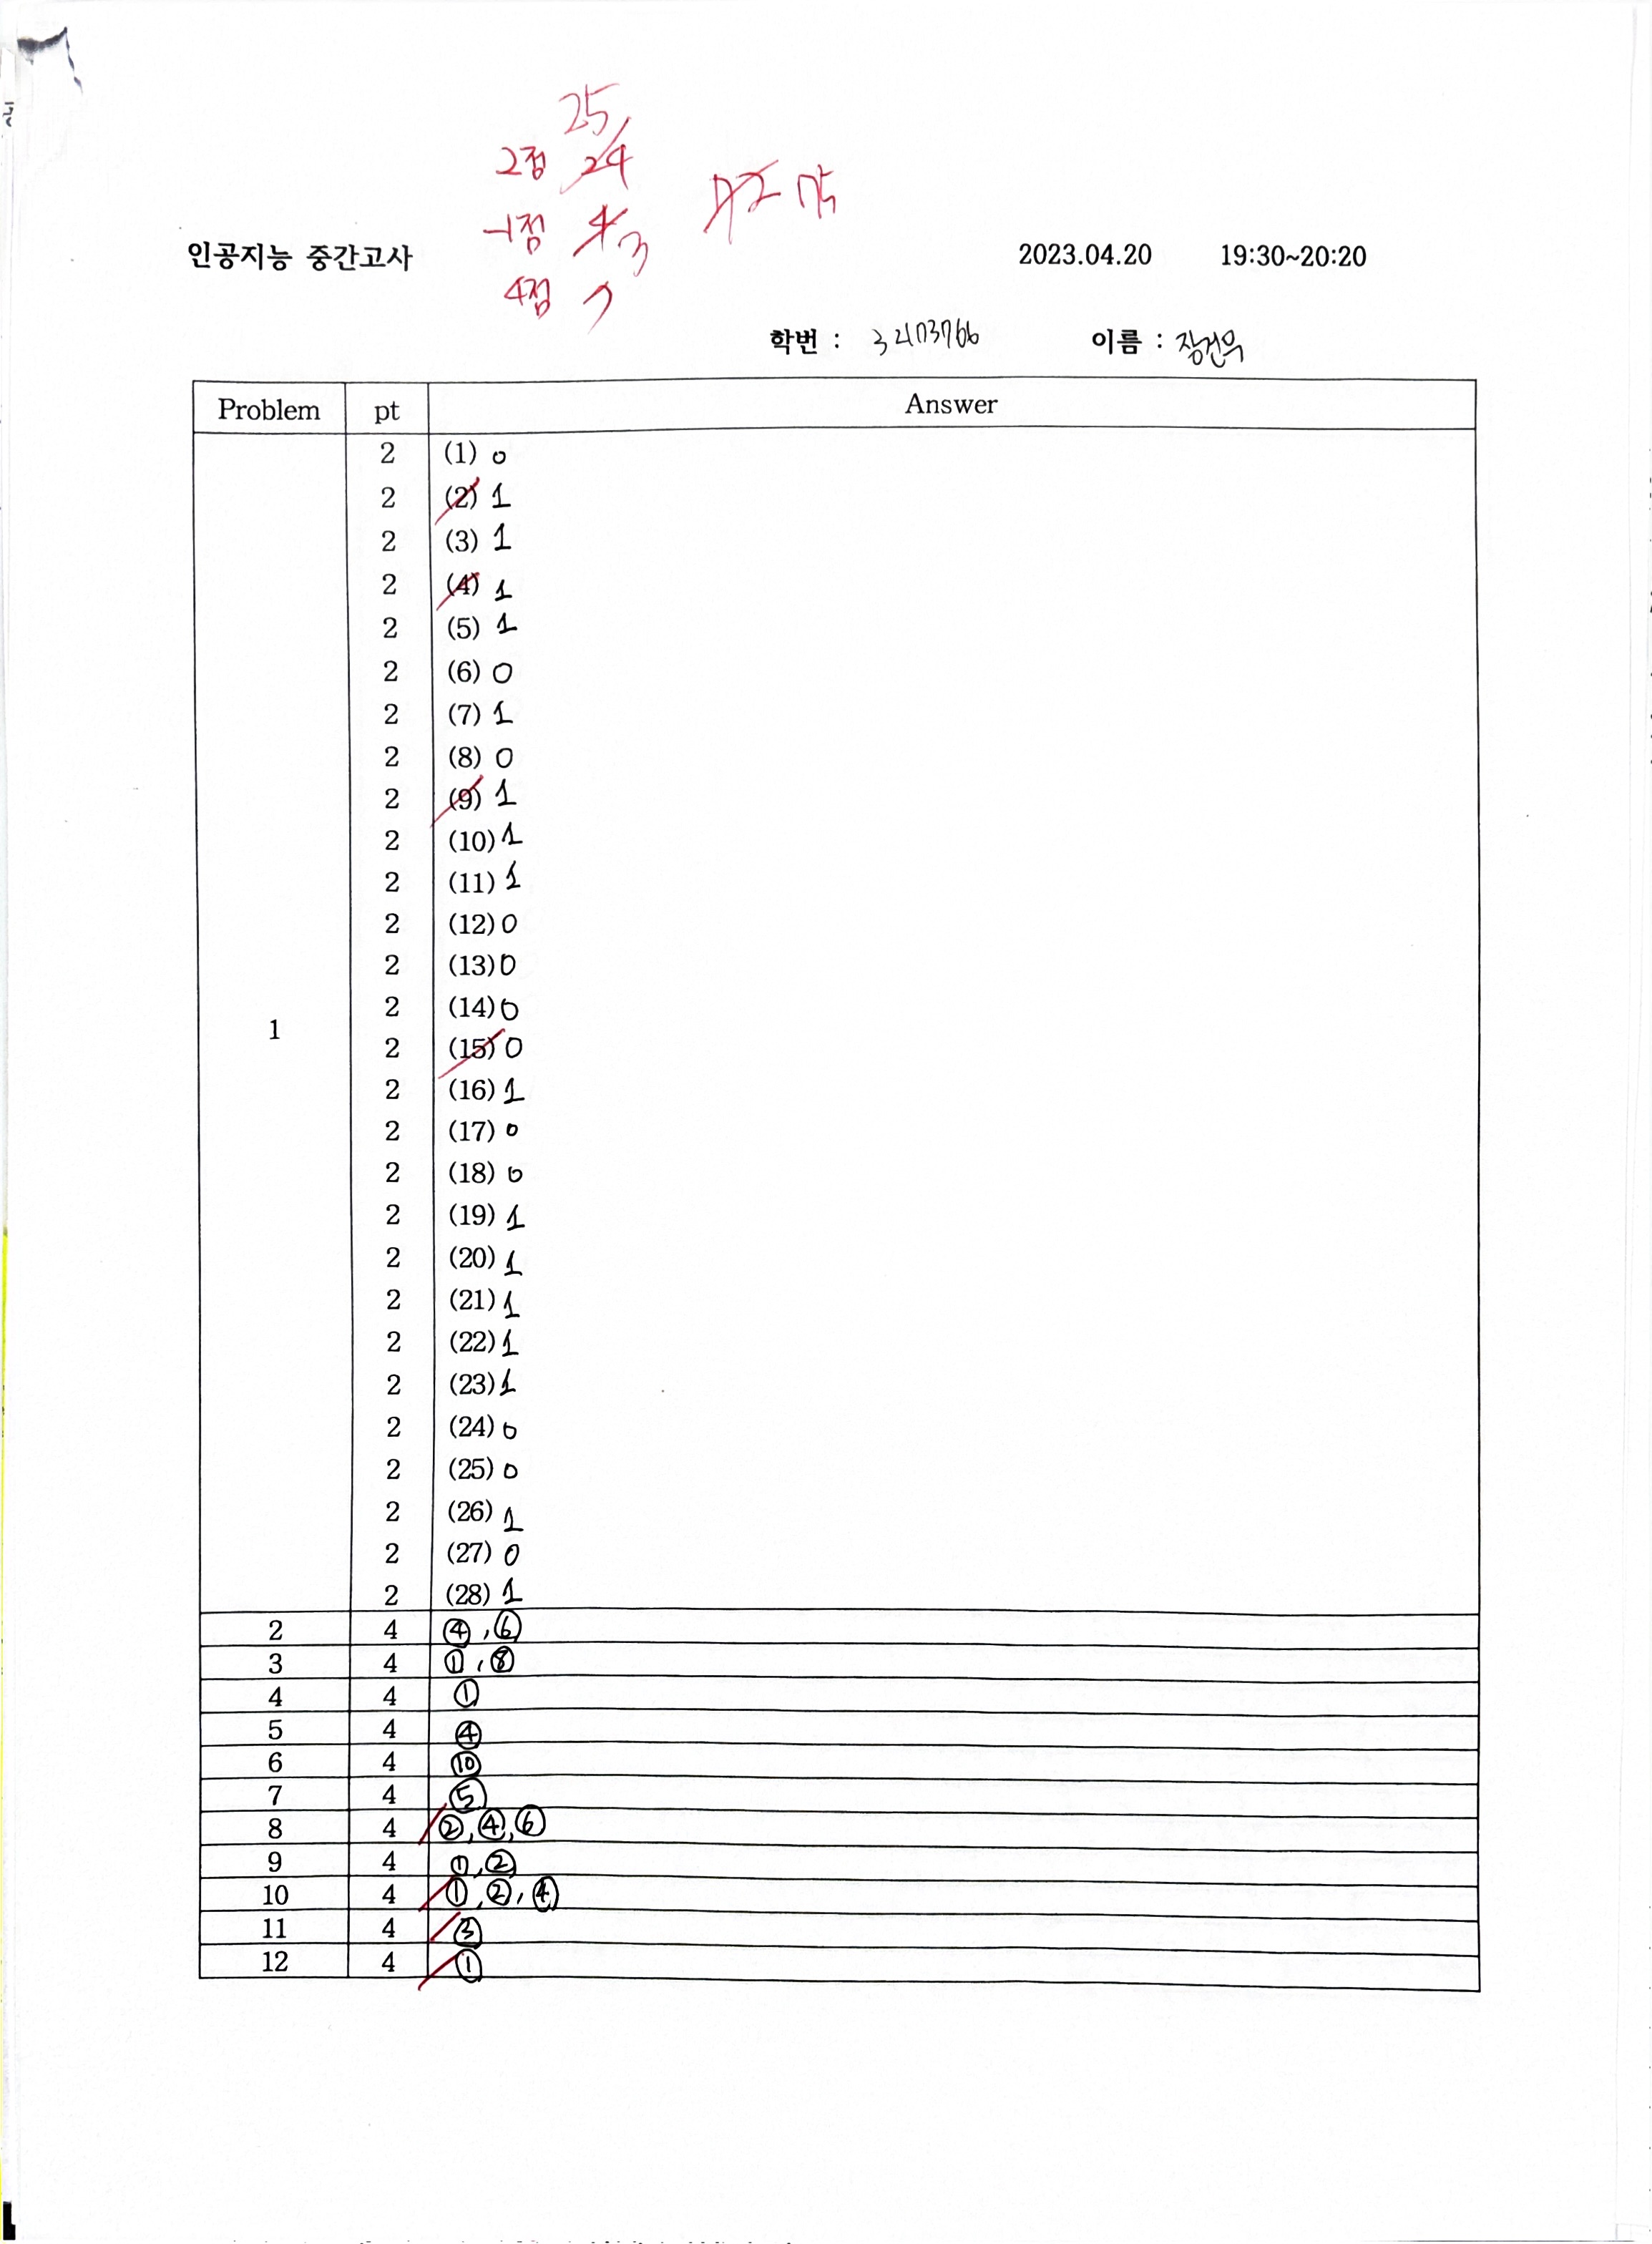 25
2점 24
72 75
-1점 4 3
4점 7
인공지능 중간고사 2023.04.20 19:30~20:20
학번 : 32173766 이름 : 장건욱
Problem pt Answer
2 (1) 0
2 (2) 1
2 (3) 1
2 (4) 1
2 (5) 1
2 (6) 0
2 (7) 1
2 (8) 0
2 (9) 1
2 (10) 1
2 (11) 1
2 (12) 0
2 (13) 0
2 (14) 0
1
2 (15) 0
2 (16) 1
2 (17) 0
2 (18) 0
2 (19) 1
2 (20) 1
2 (21) 1
2 (22) 1
2 (23) 1
2 (24) 0
2 (25) 0
2 (26) 1
2 (27) 0
2 (28) 1
2 4 ④, ⑥
3 4 ①, ⑧
4 4 ①
5 4 ④
6 4 ⑩
7 4 ⑤
8 4 ②, ④, ⑥
9 4 ①, ②
10 4 ①, ②, ④
11 4 ③
12 4 ①